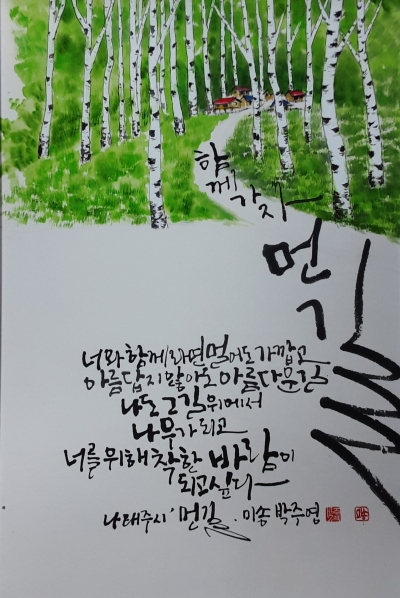 함께 가자
먼 길
너와 함께라면 멀어도 가깝고
아름답지 않아도 아름다운 길
나도 그 길 위에서
나무가 되고
너를 위해 착한 바람이
되고 싶다
나태주 시 '먼 길' . 이송 박주영